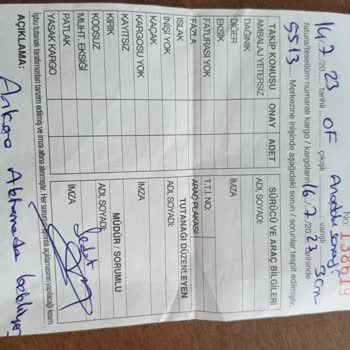 No: 138619
14.7.2023 tarihli OF çıkışlı Anadolu varışlı
fatura/tesellüm numaralı kargo / kargoların 16./7./2023 tarihinde
5513 Merkezine inişinde aşağıdaki sorun / sorunlar tespit edilmiştir.
TAKİP KONUSU ONAY ADET
AMBALAJ YETERSİZ
DAĞINIK
DİĞER
EKSİK
FATURASI YOK
FAZLA
ISLAK
İNİŞİ YOK
KAÇAK
KARGOSU YOK
KAYITSIZ
KIRIK
KODSUZ
MUHT. EKSİĞİ
PATLAK
YASAK KARGO
SÜRÜCÜ VE ARAÇ BİLGİLERİ
ADI, SOYADI:
İMZA
T.T.İ. NO.
ARAÇ PLAKASI
TUTANAĞI DÜZENLEYEN
ADI, SOYADI:
İMZA
MÜDÜR / SORUMLU
ADI, SOYADI:
İMZA
İşbu tutanak taraflarımızdan tanzim edilmiş ve imza altına alınmıştır.
AÇIKLAMA: Ankara Aktarmada bekliyor